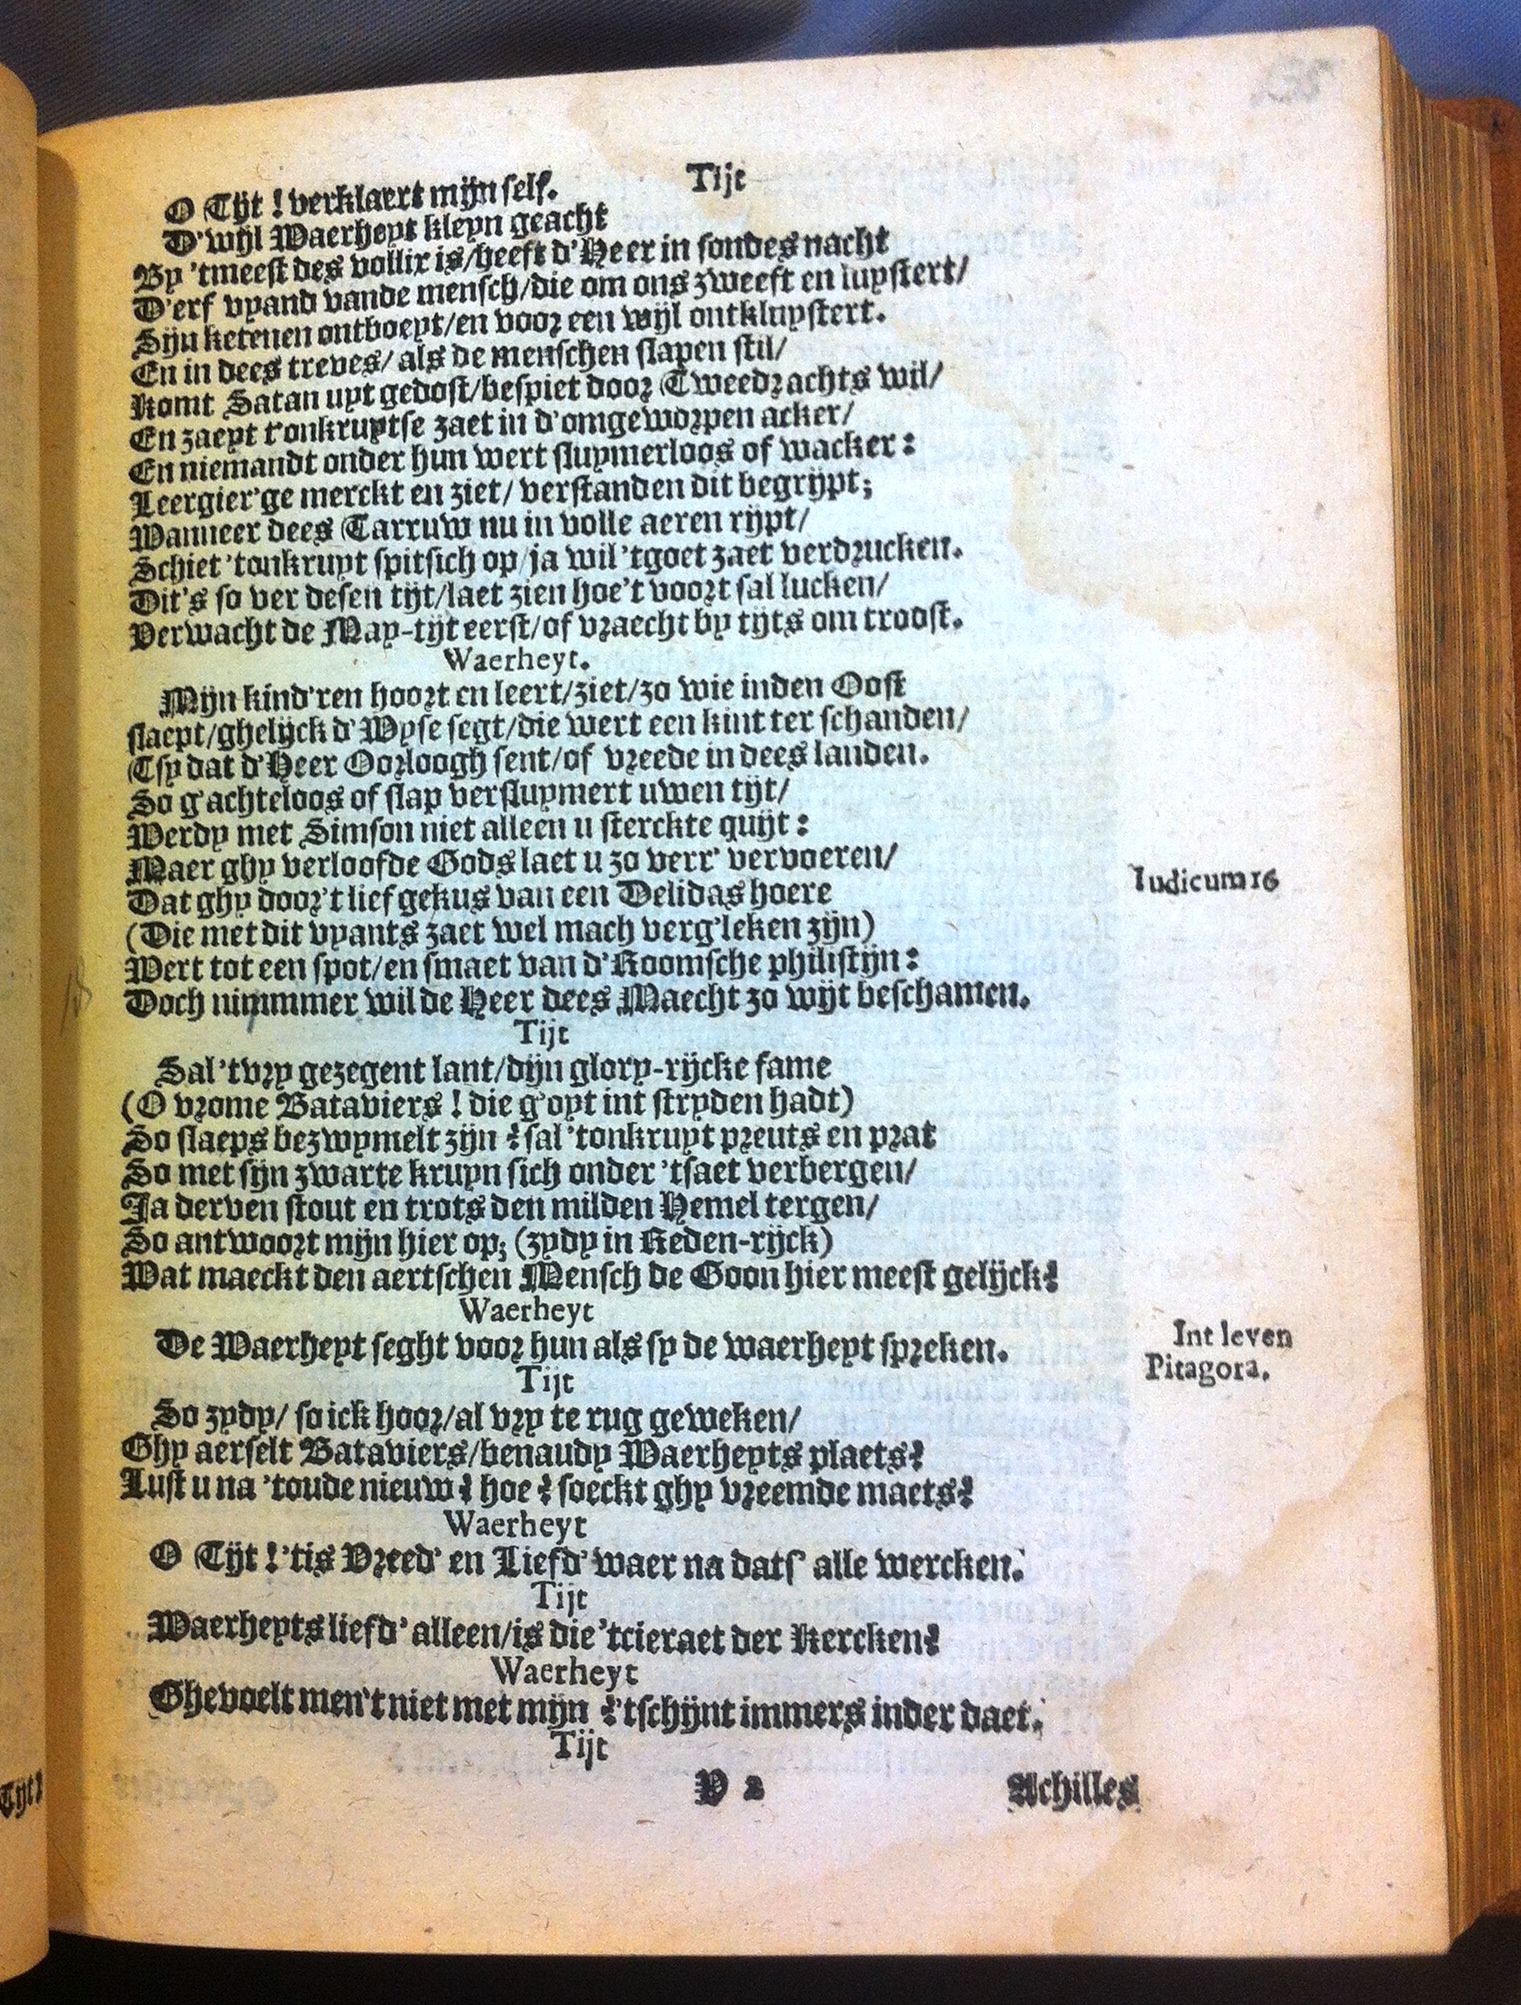 135
O Tijt ! verklaert mijn self. Tijt
D'wijl Waerheyt kleyn geacht
By 'tmeest des vollix is/heeft d'Heer in sondes nacht
D'erf vyand vande mensch/die om ons zweeft en luystert/
Sijn ketenen ontboeyt/en voor een wijl ontkluystert.
En in dees treves/ als de menschen slapen stil/
Komt Satan uyt gedost/bespiet door Tweedrachts wil/
En zaeyt t'onkruytse zaet in d'omgeworpen acker/
En niemandt onder hun wert sluymerloos of wacker:
Leergier'ge merckt en ziet/ verstanden dit begrijpt;
Wanneer dees Tarruw nu in volle aeren rijpt/
Schiet 'tonkruyt spitsich op/ja wil 'tgoet zaet verdrucken.
Dit's so ver desen tijt/laet zien hoe't voort sal lucken/
Verwacht de May-tijt eerst/of vraecht by tijts om troost.
Waerheyt.
Mijn kind'ren hoort en leert/ziet/zo wie inden Oost
slaept/ghelijck d'Wyse segt/die wert een kint ter schanden/
Tsy dat d'Heer Oorloogh sent/of vreede in dees landen.
So g'achteloos of slap versluymert uwen tijt/
Werdy met Simson niet alleen u sterckte quijt:
Maer ghy verloofde Gods laet u zo verr' vervoeren/
Dat ghy door't lief gekus van een Delidas hoere
Iudicum 16
(Die met dit vyants zaet wel mach verg'leken zijn)
Wert tot een spot/en smaet van d'Roomsche philistijn:
Doch nimmmer wil de Heer dees Maecht zo wijt beschamen.
Tijt
Sal 'tvry gezegent lant/dijn glory-rijcke fame
(O vrome Bataviers ! die g'oyt int stryden hadt)
So slaeps bezwymelt zijn ? sal 'tonkruyt preuts en prat
So met sijn zwarte kruyn sich onder 'tsaet verbergen/
Ja derven stout en trots den milden Hemel tergen/
So antwoort mijn hier op; (zydy in Reden-rijck)
Wat maeckt den aertschen Mensch de Goon hier meest gelijck?
Waerheyt
De Waerheyt seght voor hun als sy de waerheyt spreken.
Int leven
Pitagora.
Tijt
So zydy/ so ick hoor/al vry te rug geweken/
Ghy aerselt Bataviers/benaudy Waerheyts plaets?
Lust u na 'toude nieuw? hoe ? soeckt ghy vreemde maets?
Waerheyt
O Tijt ! 'tis Vreed' en Liefd' waer na dats' alle wercken.
Tijt
Waerheyts liefd' alleen/is die 'tcieraet der Kercken?
Waerheyt
Ghevoelt men't niet met mijn ? 'tschijnt immers inder daet.
Tijt
V 2 Achilles